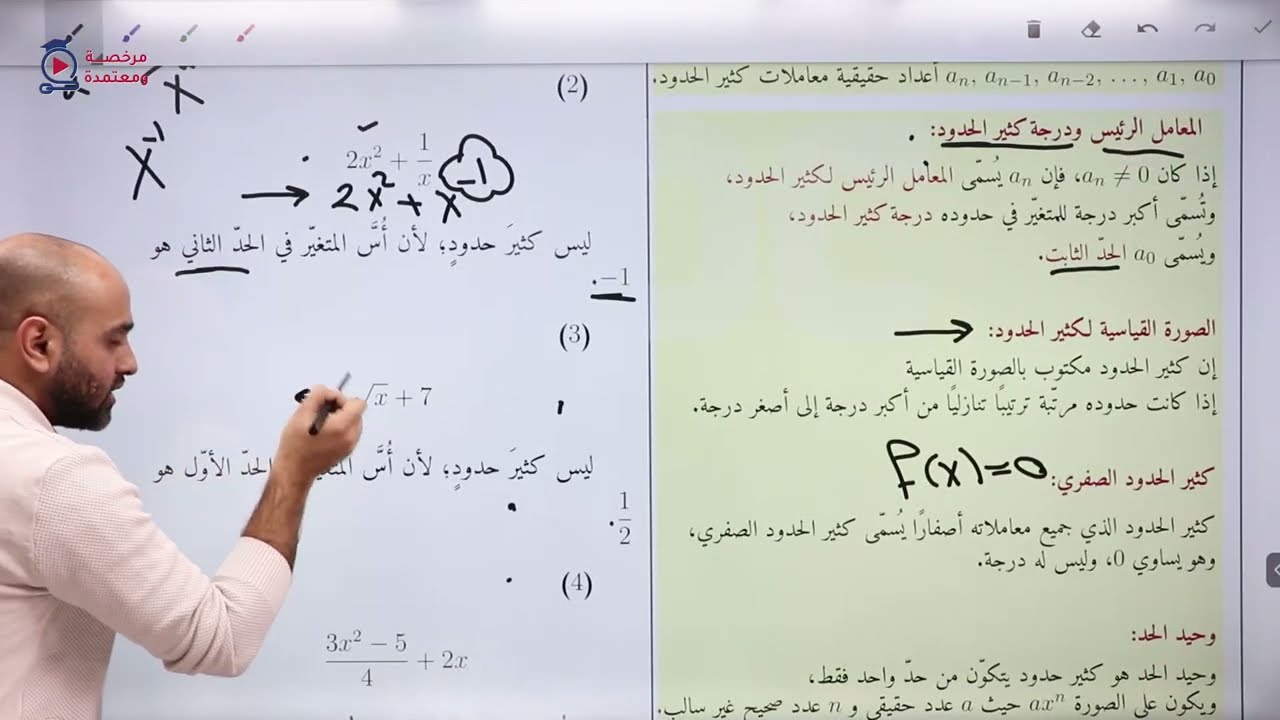 مرخصة
ومعتمدة
أعداد حقيقية معاملات كثير الحدود. aₙ, aₙ₋₁, aₙ₋₂, …, a₁, a₀
المعامل الرئيس ودرجة كثير الحدود:
إذا كان aₙ ≠ 0، فإن aₙ يُسمّى المعامل الرئيس لكثير الحدود،
وتُسمّى أكبر درجة للمتغيّر في حدوده درجة كثير الحدود،
ويُسمّى a₀ الحدّ الثابت.
الصورة القياسية لكثير الحدود:
إن كثير الحدود مكتوب بالصورة القياسية
إذا كانت حدوده مرتّبة ترتيبًا تنازليًا من أكبر درجة إلى أصغر درجة.
كثير الحدود الصفري: f(x)=0
كثير الحدود الذي جميع معاملاته أصفارًا يُسمّى كثير الحدود الصفري،
وهو يساوي 0، وليس له درجة.
وحيد الحد:
وحيد الحد هو كثير حدود يتكوّن من حدّ واحد فقط،
ويكون على الصورة axⁿ حيث a عدد حقيقي و n عدد صحيح غير سالب.
(2)
x
x⁻¹
2x² + 1/x
→ 2x² + x⁻¹
ليس كثيرَ حدودٍ؛ لأن أُسَّ المتغيّر في الحدّ الثاني هو
−1.
(3)
√x + 7
ليس كثيرَ حدودٍ؛ لأن أُسَّ الحدّ الأوّل هو
1/2.
(4)
(3x² − 5)/4 + 2x